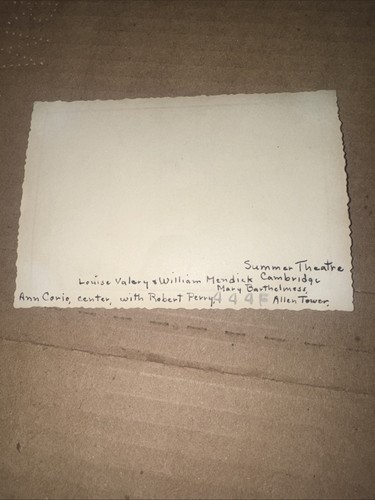 Summer Theatre
Cambridge
Louise Valery & William Mendick
Mary Barthelmess,
Ann Corio, center, with Robert Perry,
Allen Tower.
444F